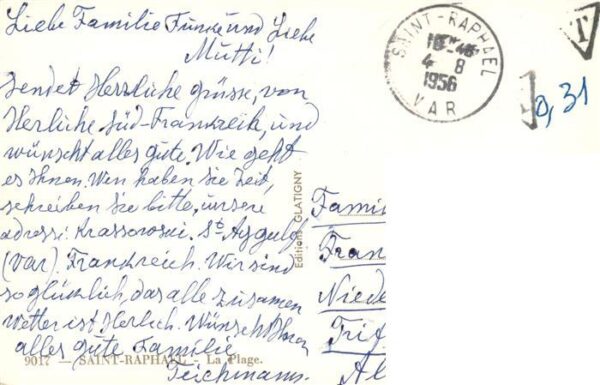 Liebe Familie Funke und Liebe
Mutti!
sendet Herzliche grüsse, von
Herliche Süd-Frankreih, und
wünscht alles gute. Wie geht
es Ihnen. Wen haben Sie Zeit,
schreiben Sie bitte, unsere
adresse: St Aygulf
(Var). Frankreich. Wir sind
so glücklich, das alle zusamen
Wetter ist Herlich. Wünsch Ihnen
alles gute Familie
Teichmann.
9017 — SAINT-RAPHAEL - La Plage.
Editions GLATIGNY
SAINT-RAPHAEL
4 - 8
1956
VAR
T
0,31
Famil
Fran
Niede